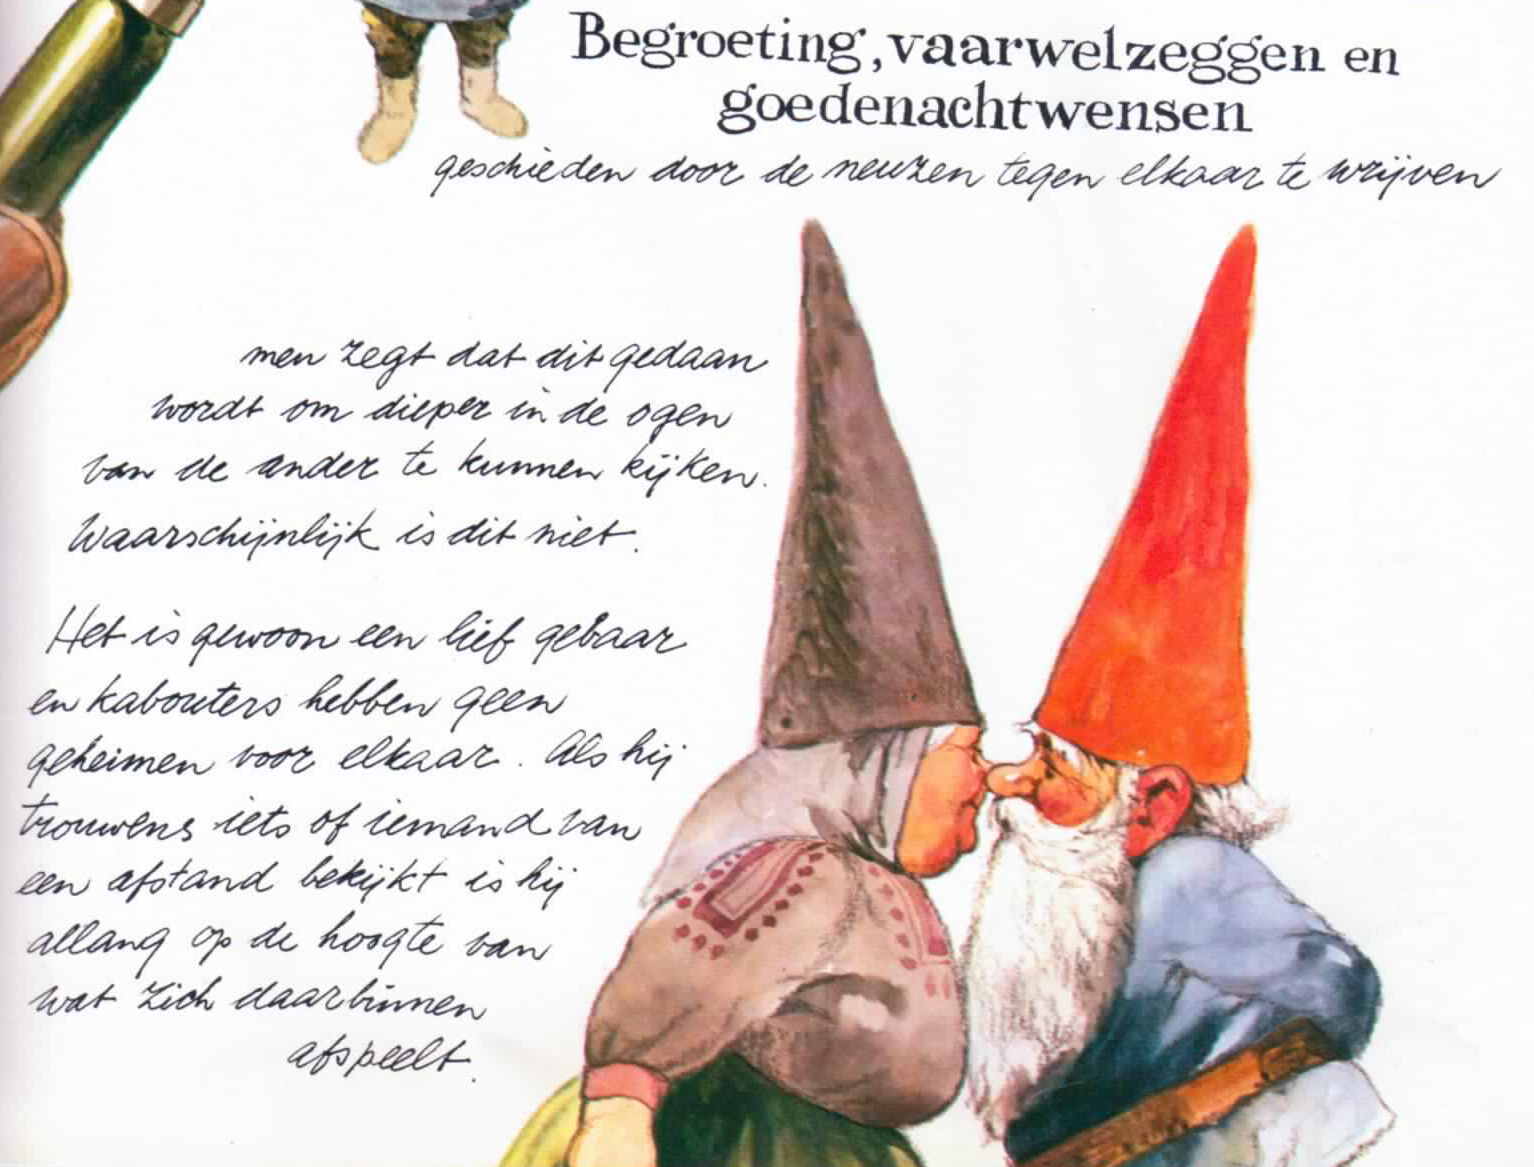 Begroeting, vaarwelzeggen en
goedenachtwensen
geschieden door de neuzen tegen elkaar te wrijven
men zegt dat dit gedaan
wordt om dieper in de ogen
van de ander te kunnen kijken.
Waarschijnlijk is dit niet.
Het is gewoon een lief gebaar
en kabouters hebben geen
geheimen voor elkaar. Als hij
trouwens iets of iemand van
een afstand bekijkt is hij
allang op de hoogte van
wat zich daarbinnen
afspeelt.